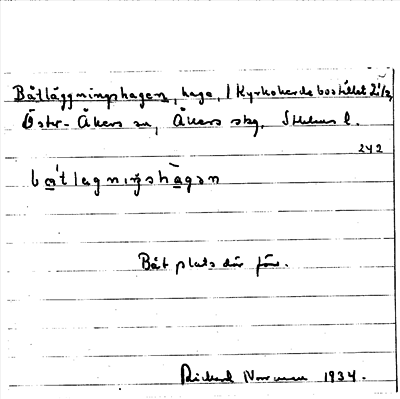 Båtläggningshagen, hage, i Kyrkoherdebostället
Östr-Åkers sn, Åkers skg. Sthlms l.
242
båtlagnıŋshagan
Båt plats där förr.
Richard Norrman 1934.